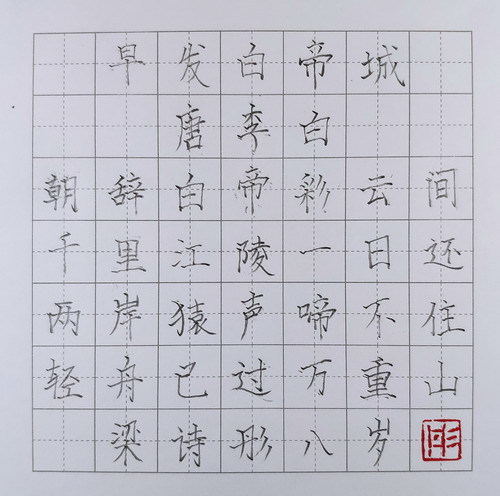 早发白帝城
唐李白
朝辞白帝彩云间
千里江陵一日还
两岸猿声啼不住
轻舟已过万重山
梁诗彤八岁